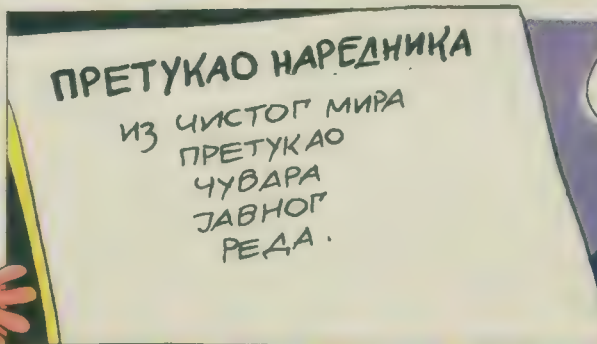 ПРЕТУКАО НАРЕДНИКА
ИЗ ЧИСТОГ МИРА
ПРЕТУКАО
ЧУВАРА
ЈАВНОГ
РЕДА.